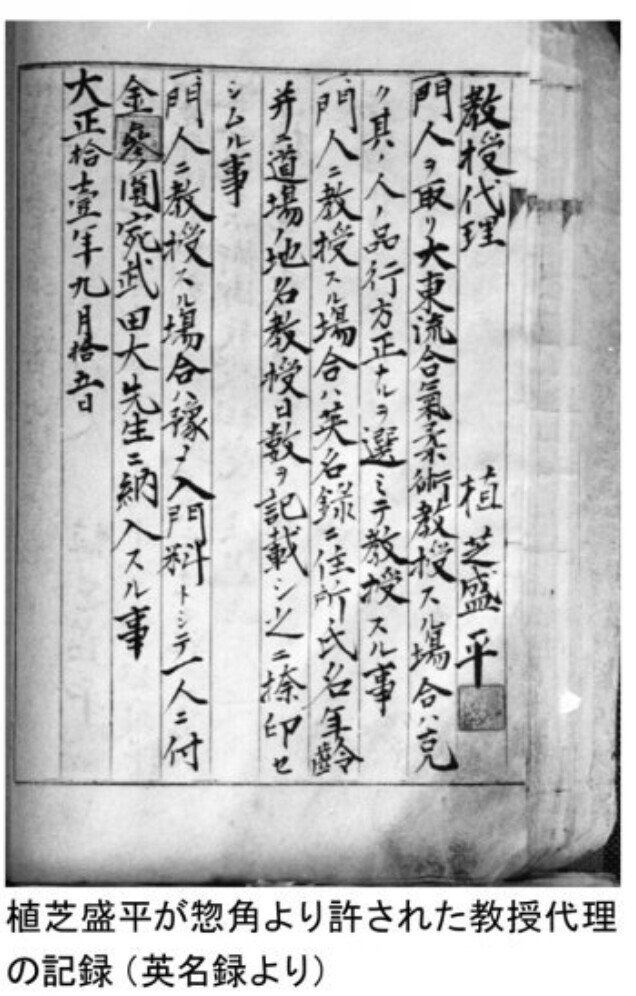 教授代理　植芝盛平
一、門人ヲ取リ大東流合氣柔術教授スル塲合ハ克
ク其ノ人ノ品行方正ナルヲ選ミテ教授スル事
一、門人ニ教授スル塲合ハ英名録ニ住所氏名年齡
并ニ道場ノ地名教授日數ヲ記載シ之ニ捺印セ
シムル事
一、門人ニ教授スル塲合ハ豫メ入門料トシテ一人ニ付
金參圓宛武田大先生ニ納入スル事
大正拾壹年九月拾五日
植芝盛平が惣角より許された教授代理
の記録（英名録より）